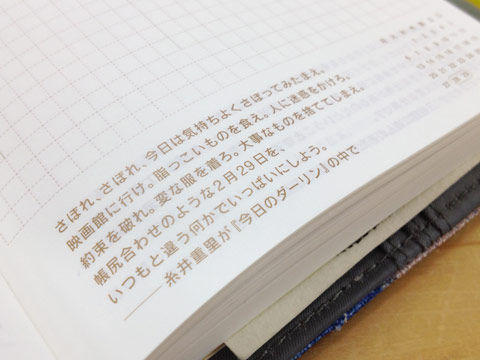 さぼれ、さぼれ、今日は気持ちよくさぼってみたまえ。
映画館に行け。脂っこいものを食え。人に迷惑をかけろ。
約束を破れ。変な服を着ろ。大事なものを捨ててしまえ。
帳尻合わせのような2月29日を、
いつもと違う何かでいっぱいにしよう。
――糸井重里が『今日のダーリン』の中で